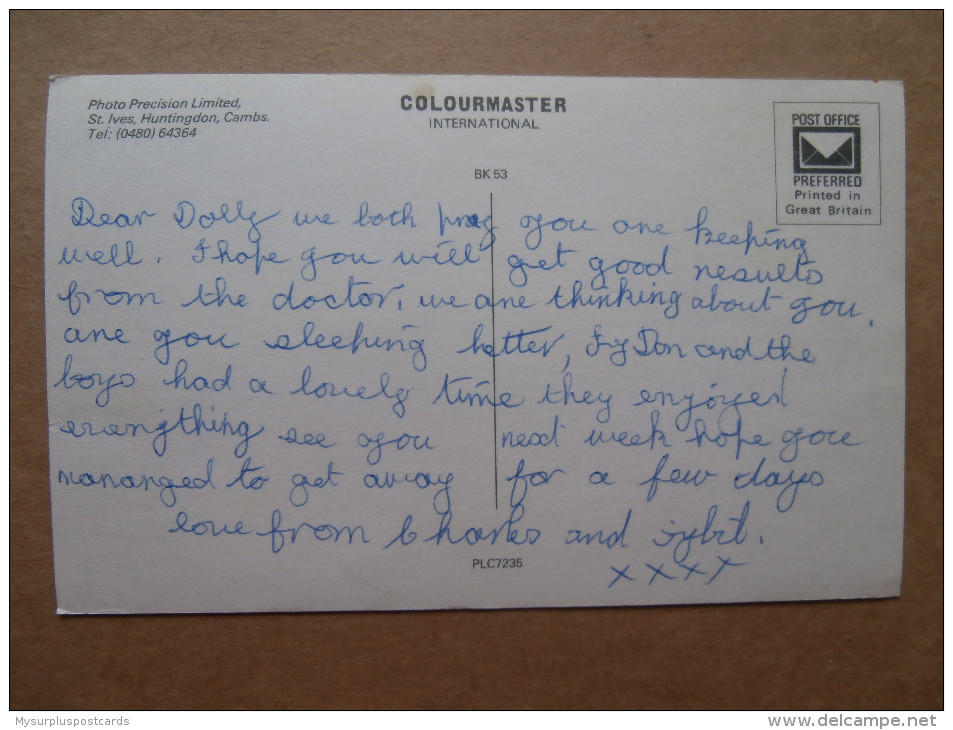 Photo Precision Limited,
St. Ives, Huntingdon, Cambs.
Tel: (0480) 64364
COLOURMASTER
INTERNATIONAL
POST OFFICE
PREFERRED
Printed in
Great Britain
BK 53
Dear Dolly we both pray you are keeping
well. I hope you will get good results
from the doctor, we are thinking about you.
are you sleeping better, Don and the
boys had a lovely time they enjoyed
everything see you next week hope you
mananged to get away for a few days
love from Charles and Sybil.
PLC7235
xxxx
Mysurpluspostcards
www.delcampe.net